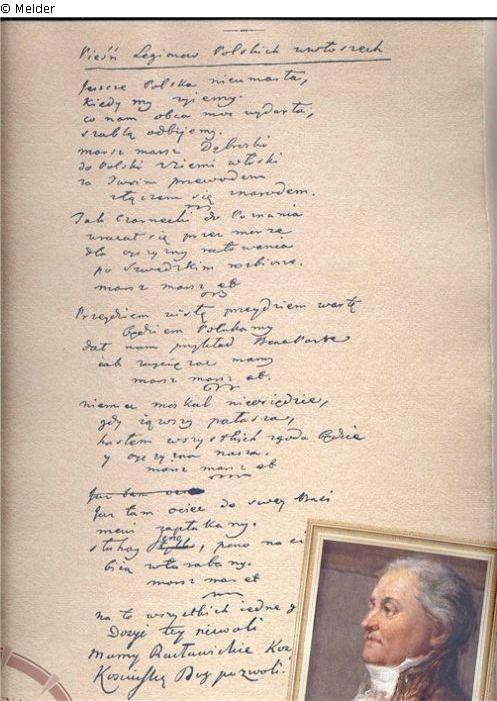 © Melder
Pieśń Legionow Polskich wewłoszech
Jeszcze Polska nieumarła,
Kiedy my żyiemy.
co nam obca moc wydarła,
szablą odbijemy.
marsz marsz Dąbroski
do Polski zziemi włoski
za Twoim przewodem
złączem się znarodem.
Jak Czarnecki do Poznania
wracał się przez morze
dla oyczyzny ratowania
po Szwedzkim rozbiorze.
marsz marsz et
Przeydziem wisłę przeydziem wartę
będziem Polakamy
dał nam przykład Bonaparte
iak zwyciężać mamy
marsz marsz et.
niemiec moskal nieosiędzie,
gdy iąwszy pałasza,
hasłem wszystkich zgoda będzie
y oyczyzna nasza.
marsz marsz et
Już tam ociec do swey Basi
mówi zapłakany.
słuchay , pono nasi
bią wtarabany.
marsz marsz et
na to wszystkich iedne g
Dosyć tey niewoli
mamy Racławickie Kos
Kosciuszkę Bog pozwoli.